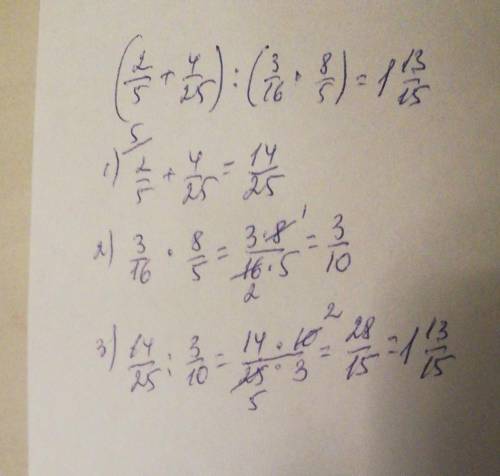 (2/5 + 4/25) : (3/16 · 8/5) = 1 13/15
1) 2/5 (5 + 4/25 = 14/25
2) 3/16 · 8/5 = 3·8 (1 / 16·5 (2 = 3/10
3) 14/25 : 3/10 = 14·10 (2 / 25·3 (5 = 28/15 = 1 13/15